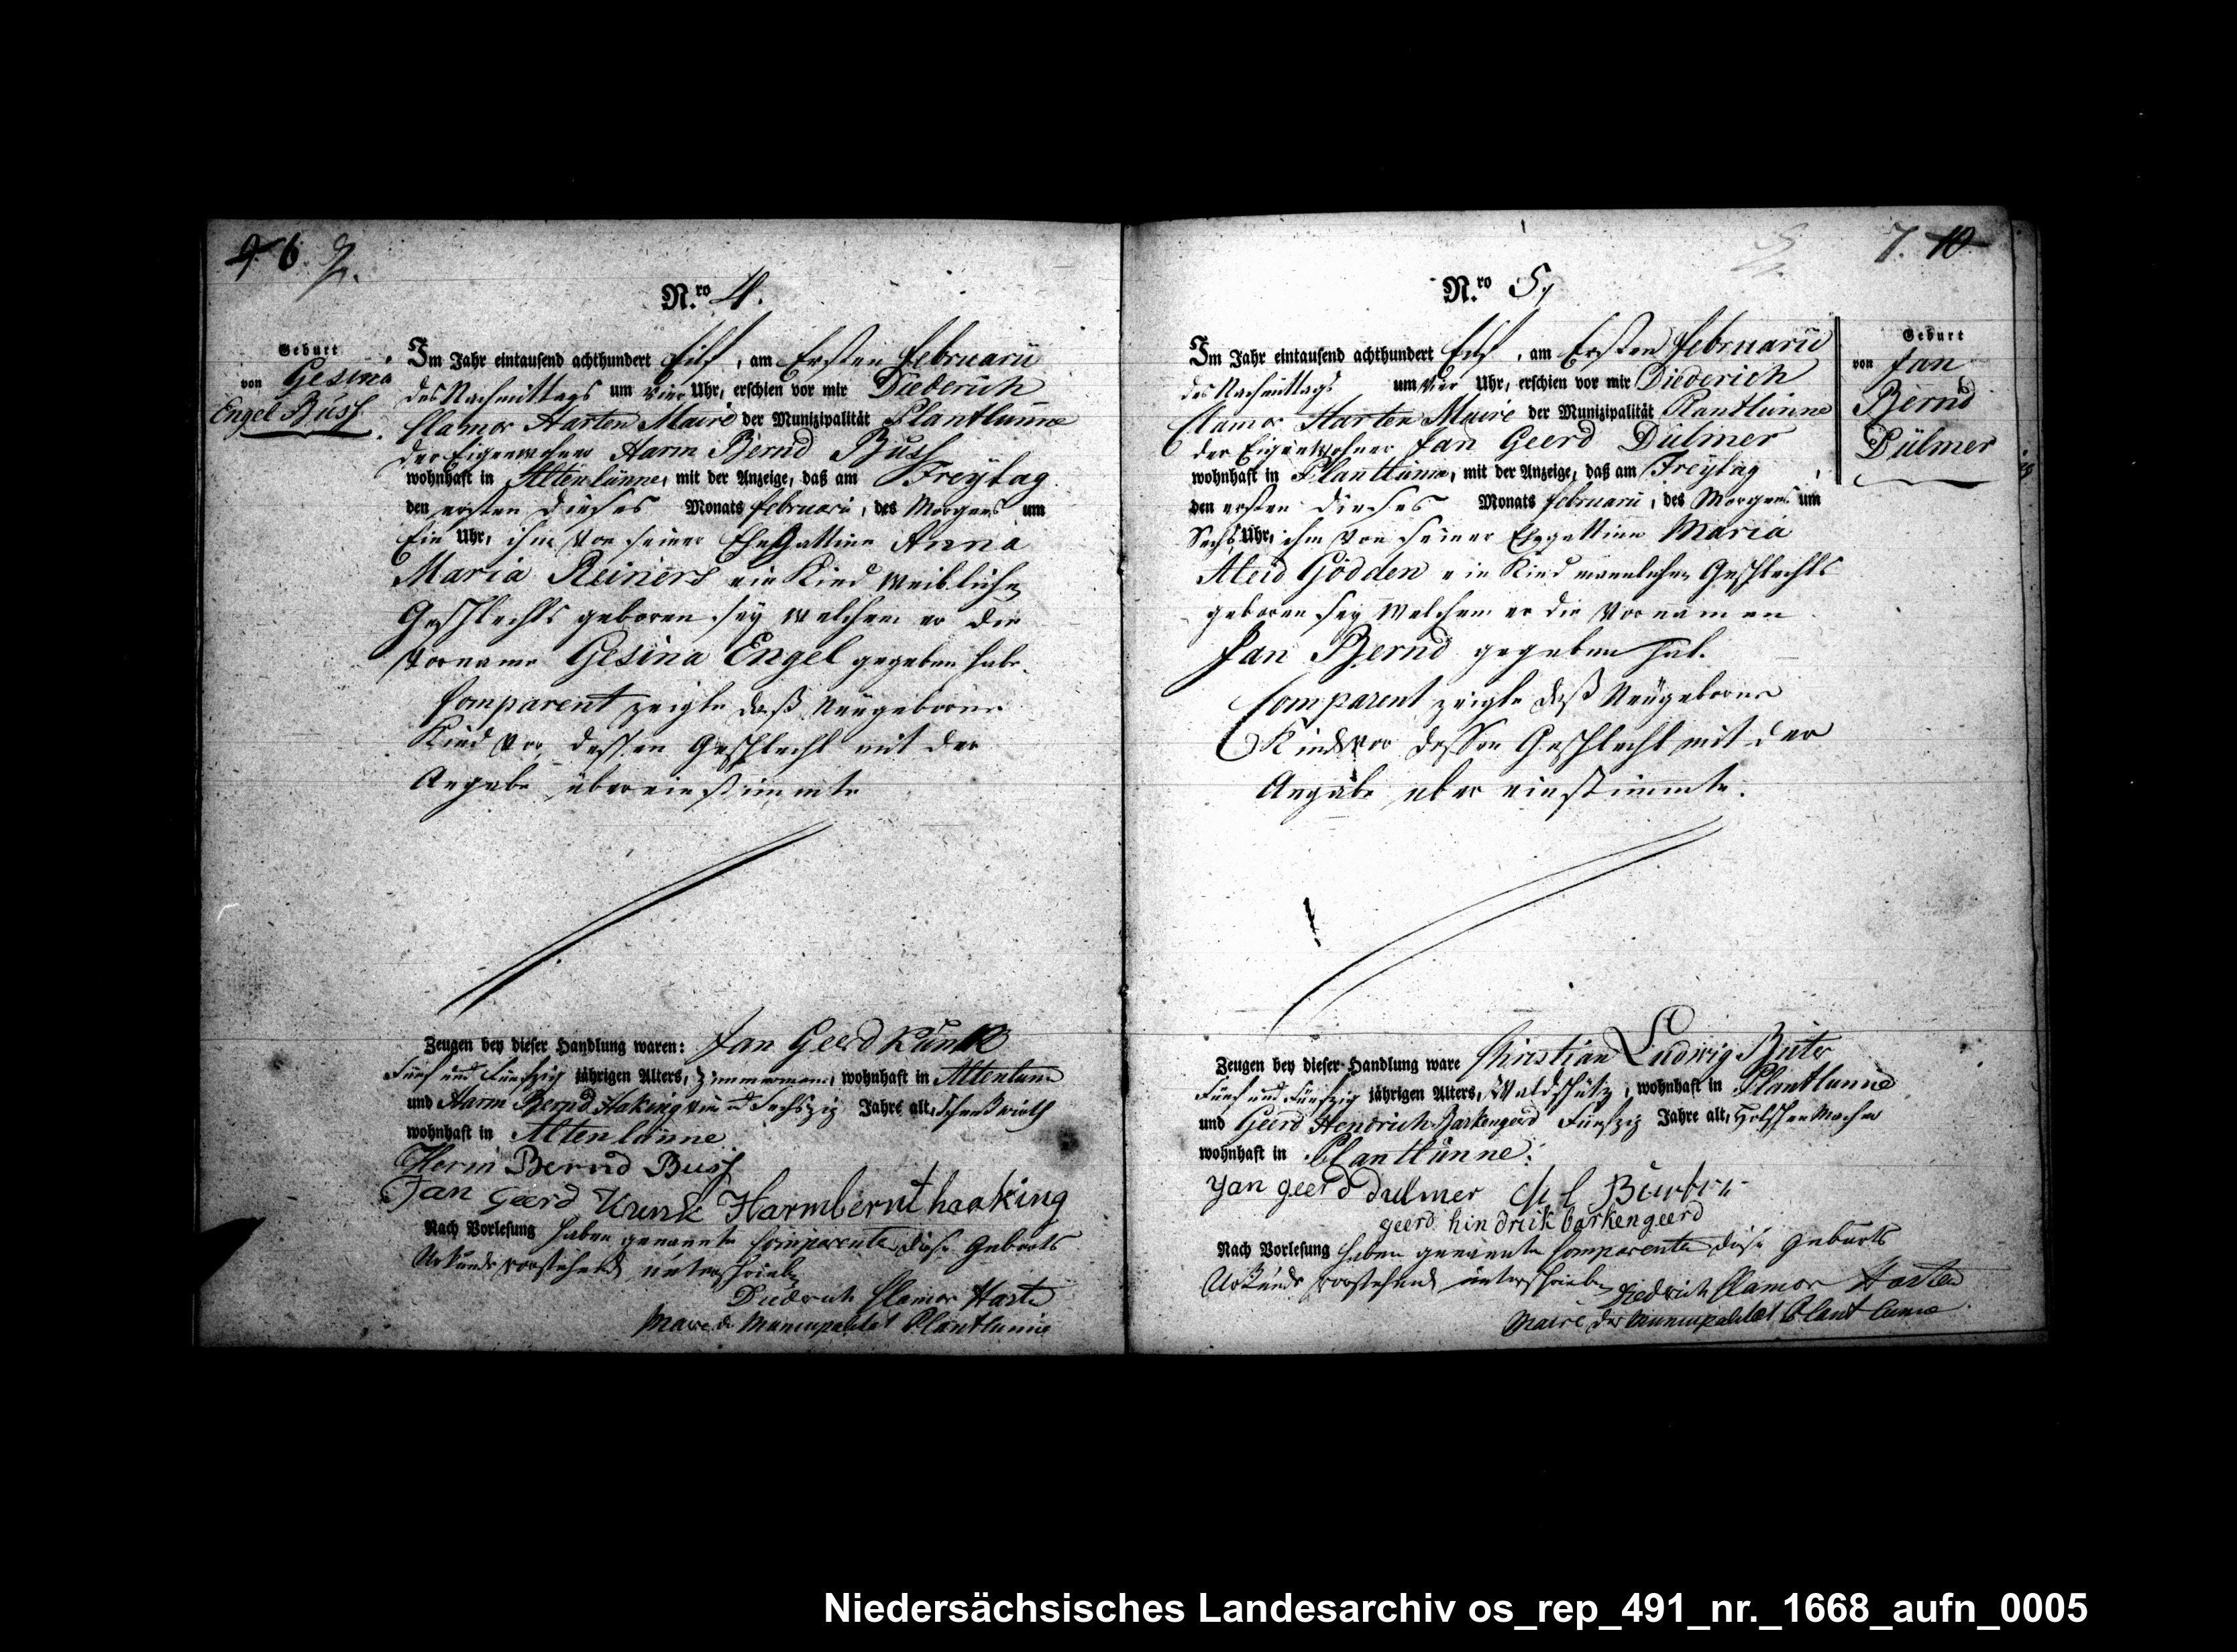 9 6
N.ro 4.
Geburt
von Gesina
Engel Buss
Im Jahr eintausend achthundert Eilf, am Ersten februarii
des Nachmittags um vier Uhr, erschien vor mir Diederich
Clamor Harten Maire der Munizipalität Plantlünne
der Eigenwohner Harm Bernd Buss
wohnhaft in Altenlünne, mit der Anzeige, daß am Freytag
den ersten dieses Monats februarii, des Morgens um
Ein Uhr, ihm von seiner EheGattinn Anna
Maria Reiners ein Kind weibliches
Geschlechts geboren sey welchem er die
Vorname Gesina Engel gegeben habe.
Comparent zeigte daß Neugeborne
Kind vor, dessen Geschlecht mit der
Angabe übereinstimmte
Zeugen bey dieser Handlung waren: Jan Geerd Kunk
Fünf und Fünfzig jährigen Alters, Zimmermann, wohnhaft in Altenlünne
und Harm Bernd Haking und Sechszig Jahre alt,
wohnhaft in Altenlünne
Herm Bernd Buss
Jan Geerd Kunk Harmbernt haaking
Nach Vorlesung haben genannte Comparenten diese Geburts
Urkunde vorstehend unterschrieben
Diedrich Clamor Harten
Maire der Municipalitat Plantlunne
7. 10
N.ro 5,
Geburt
von Jan
Bernd
Dülmer
Im Jahr eintausend achthundert Eilf, am Ersten februarii
des Nachmittags um vier Uhr, erschien vor mir Diederich
Clamor Harten Maire der Munizipalität Plantlünne
der Eigenwohner Jan Geerd Dülmer
wohnhaft in Plantlünne, mit der Anzeige, daß am Freytag
den ersten dieses Monats februarii, des Morgens um
Sechs Uhr, ihm von seiner Ehegattinn Maria
Aleid Gödden ein Kind männlichen Geschlechts
geboren sey welchem er die Vornamen
Jan Bernd gegeben hat.
Comparent zeigte daß Neugeborne
Kind vor dessen Geschlecht mit der
Angabe uber einstimmte.
Zeugen bey dieser Handlung ware Christian Ludwig
Fünf und Fünfzig jährigen Alters, Waldschütz, wohnhaft in Plantlünne
und Geerd Hendrich Barkengerd Fünfzig Jahre alt, Holschenmacher
wohnhaft in Plantlünne.
yan geerd dulmer
geerd hindrick barkengeerd
Nach Vorlesung haben genannte Comparenten diese Geburts
Urkunde vorstehend unterschrieben Diedrich Clamor Harten
Maire der Municipalitat Plantlunne
Niedersächsisches Landesarchiv os_rep_491_nr._1668_aufn_0005